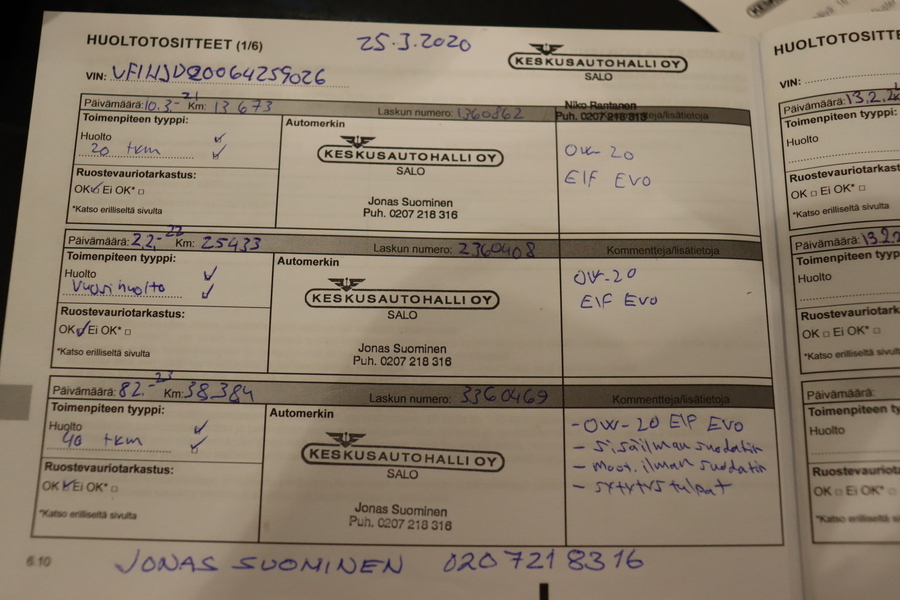 HUOLTOTOSITTEET (1/6)
25.3.2020
KESKUSAUTOHALLI OY
SALO
VIN:
Niko Rantanen
Puh. 0207 218 313
Päivämäärä: 10.3-21 Km: 13 673 Laskun numero: 1360862 /lisätietoja
Toimenpiteen tyyppi:
Huolto
20 tkm
Ruostevauriotarkastus:
OK Ei OK*
*Katso erilliseltä sivulta
Automerkin
KESKUSAUTOHALLI OY
SALO
Jonas Suominen
Puh. 0207 218 316
OW-20
Elf EVO
Päivämäärä: 2.2.-22 Km: 25433 Laskun numero: 2360408 Kommentteja/lisätietoja
Toimenpiteen tyyppi:
Huolto
Vuosihuolto
Ruostevauriotarkastus:
OK Ei OK*
*Katso erilliseltä sivulta
Automerkin
KESKUSAUTOHALLI OY
SALO
Jonas Suominen
Puh. 0207 218 316
OW-20
Elf Evo
Päivämäärä: 8.2.-23 Km: 38.384 Laskun numero: 3360469 Kommentteja/lisätietoja
Toimenpiteen tyyppi:
Huolto
40 tkm
Ruostevauriotarkastus:
OK Ei OK*
*Katso erilliseltä sivulta
Automerkin
KESKUSAUTOHALLI OY
SALO
Jonas Suominen
Puh. 0207 218 316
- OW-20 Elf EVO
- sisäilman suodatin
- moot. ilman suodatin
- sytytystulpat
6.10
JONAS SUOMINEN 020 721 8316
HUOLTOTOSITTE
VIN:
Päivämäärä: 13.2.
Toimenpiteen tyyppi:
Huolto
Ruostevauriotarkas
OK Ei OK*
*Katso erilliseltä sivulta
Päivämäärä: 13.2
Toimenpiteen ty
Huolto
Ruostevauriotar
OK Ei OK*
*Katso erilliseltä
Päivämäärä:
Toimenpiteen
Huolto
Ruostevaurio
OK Ei OK*
*Katso erillise